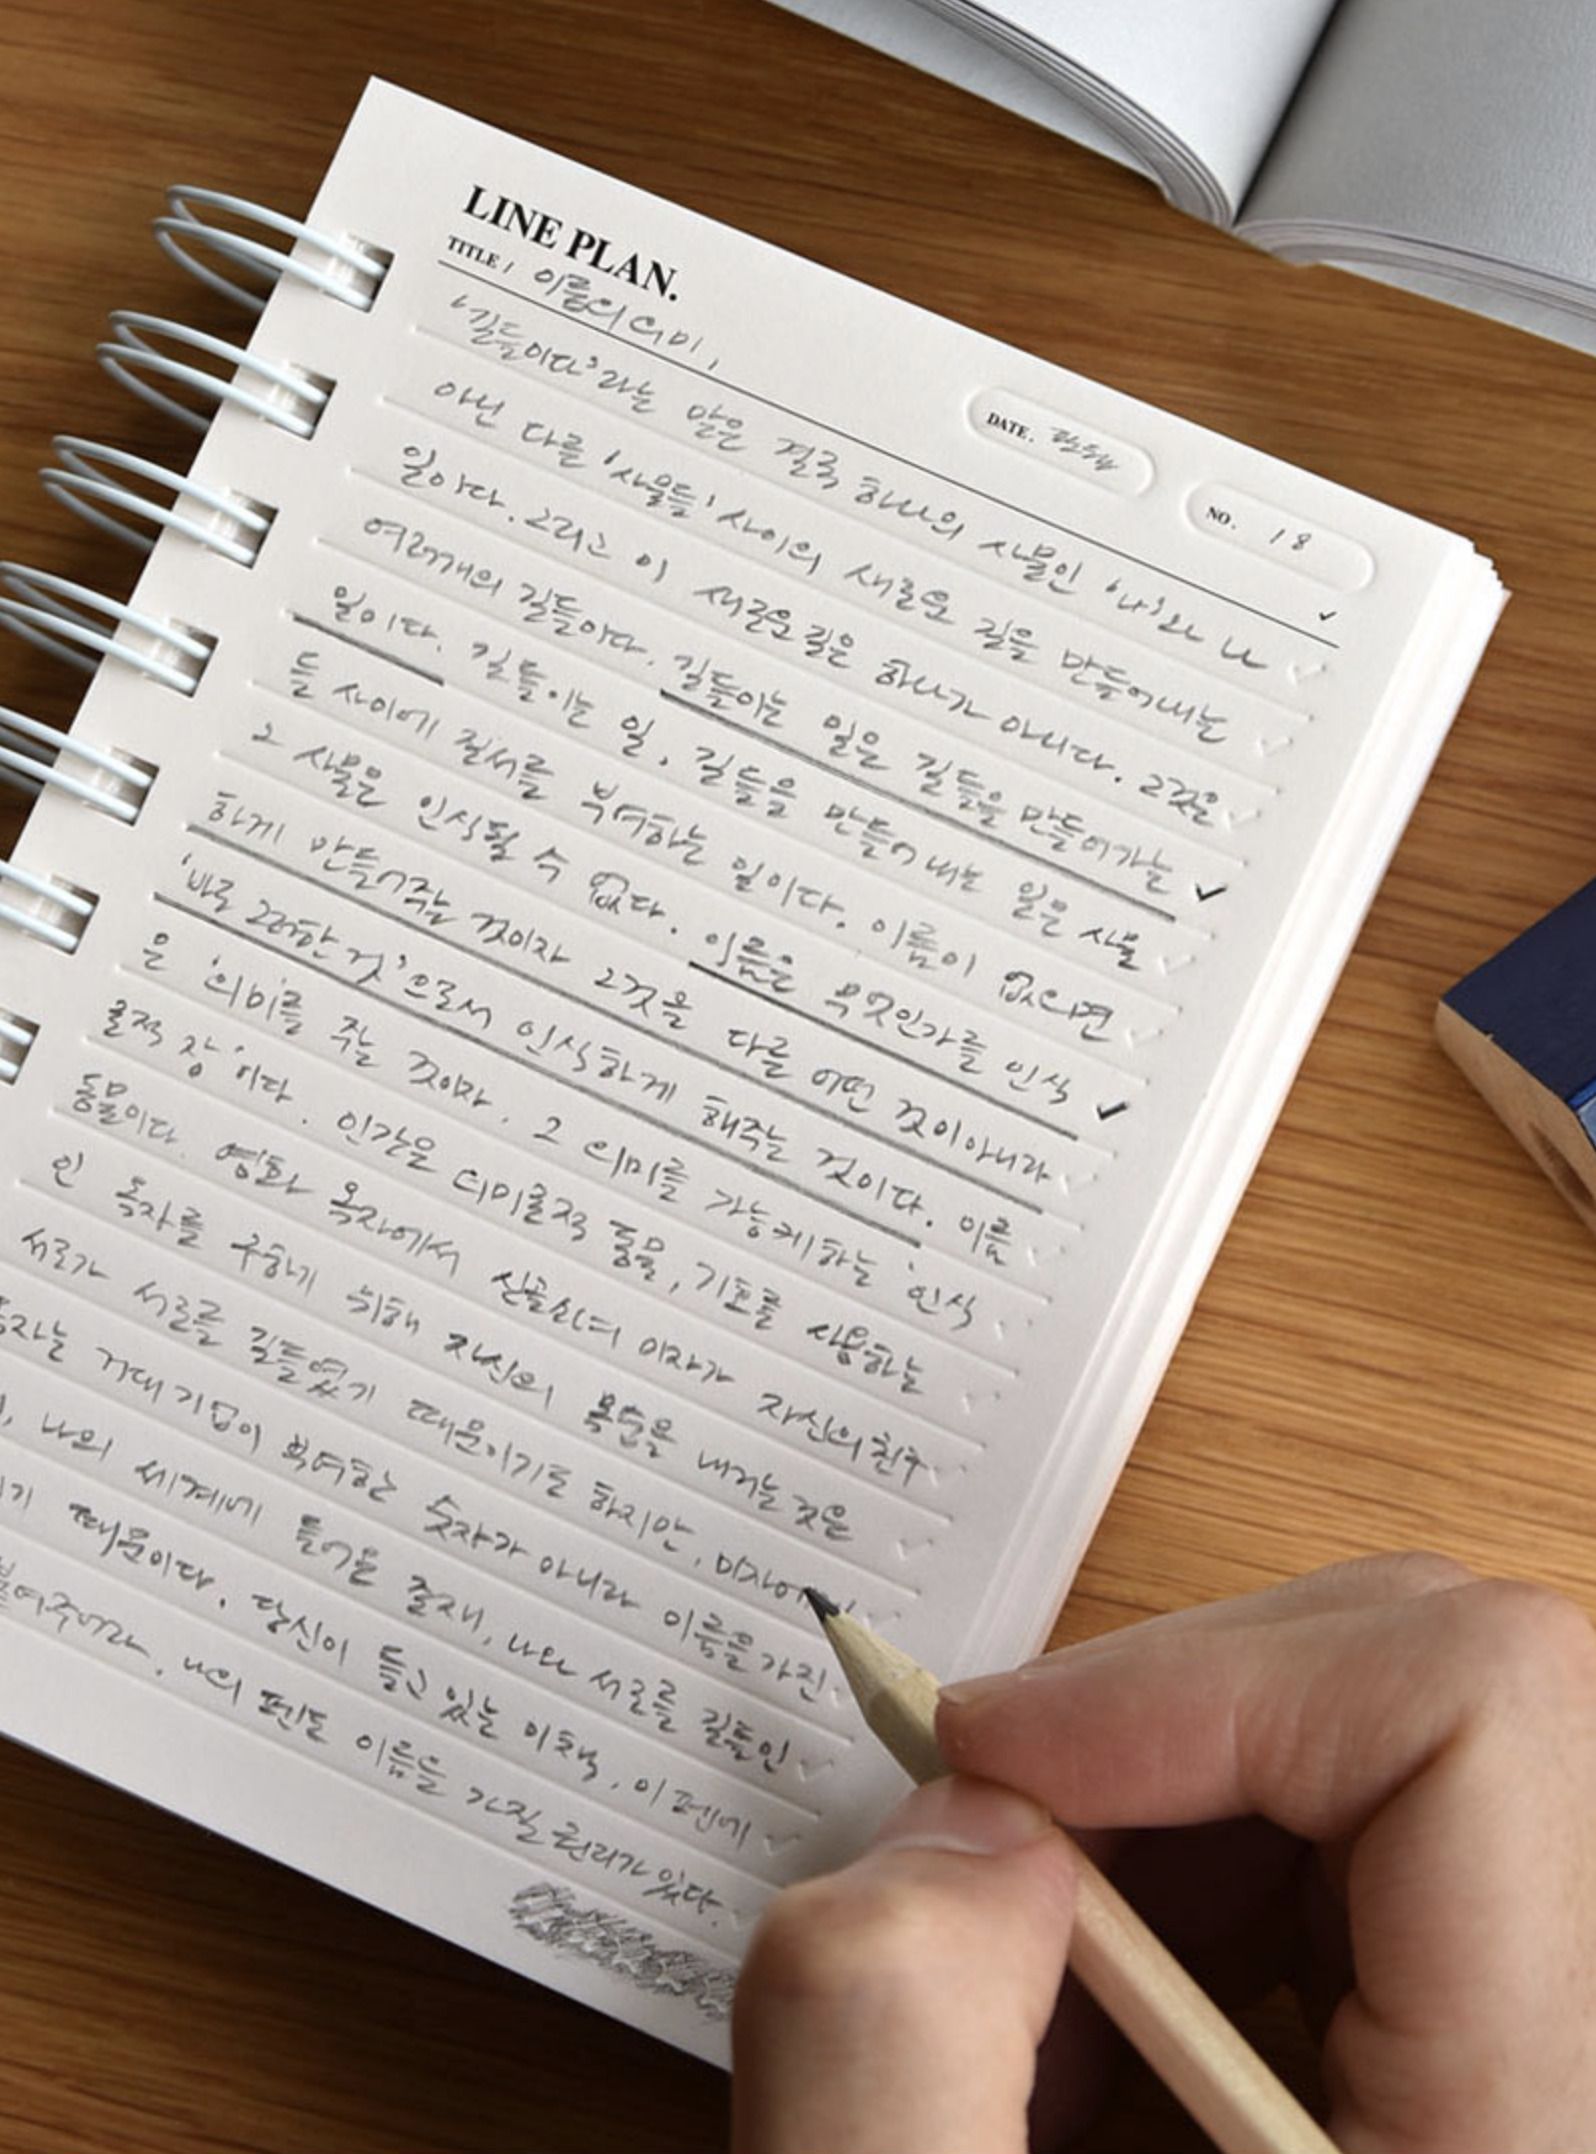 LINE PLAN.
TITLE / 이름의 의미,
DATE.
NO. 18
'길들이다'라는 말은 결국 하나의 사물인 '나'와 나
아닌 다른 '사물들' 사이의 새로운 길을 만들어내는
일이다. 그리고 이 새로운 길은 하나가 아니다. 그것은
여러개의 길들이다. 길들이는 일은 길들을 만들어가는
일이다. 길들이는 일, 길들을 만들어 내는 일은 사물
들 사이에 질서를 부여하는 일이다. 이름이 없으면
그 사물은 인식될 수 없다. 이름은 무엇인가를 인식
하게 만들어주는 것이자 그것을 다른 어떤 것이아니라
'바로 그러한 것'으로서 인식하게 해주는 것이다. 이름
은 '의미'를 주는 것이자. 그 의미를 가능케하는 '인식
론적 장'이다. 인간은 의미론적 동물, 기호를 사용하는
동물이다. 영화 옥자에서 산골소녀 미자가 자신의 친구
인 옥자를 구하기 위해 자신의 목숨을 내거는 것은
서로가 서로를 길들였기 때문이기도 하지만, 미자에
옥자는 거대기업이 부여하는 숫자가 아니라 이름을 가진
나의 세계에 들어온 존재, 나와 서로를 길들인
때문이다. 당신이 들고 있는 이 책, 이 펜에
붙여주어라. 나의 펜도 이름을 가질 권리가 있다.